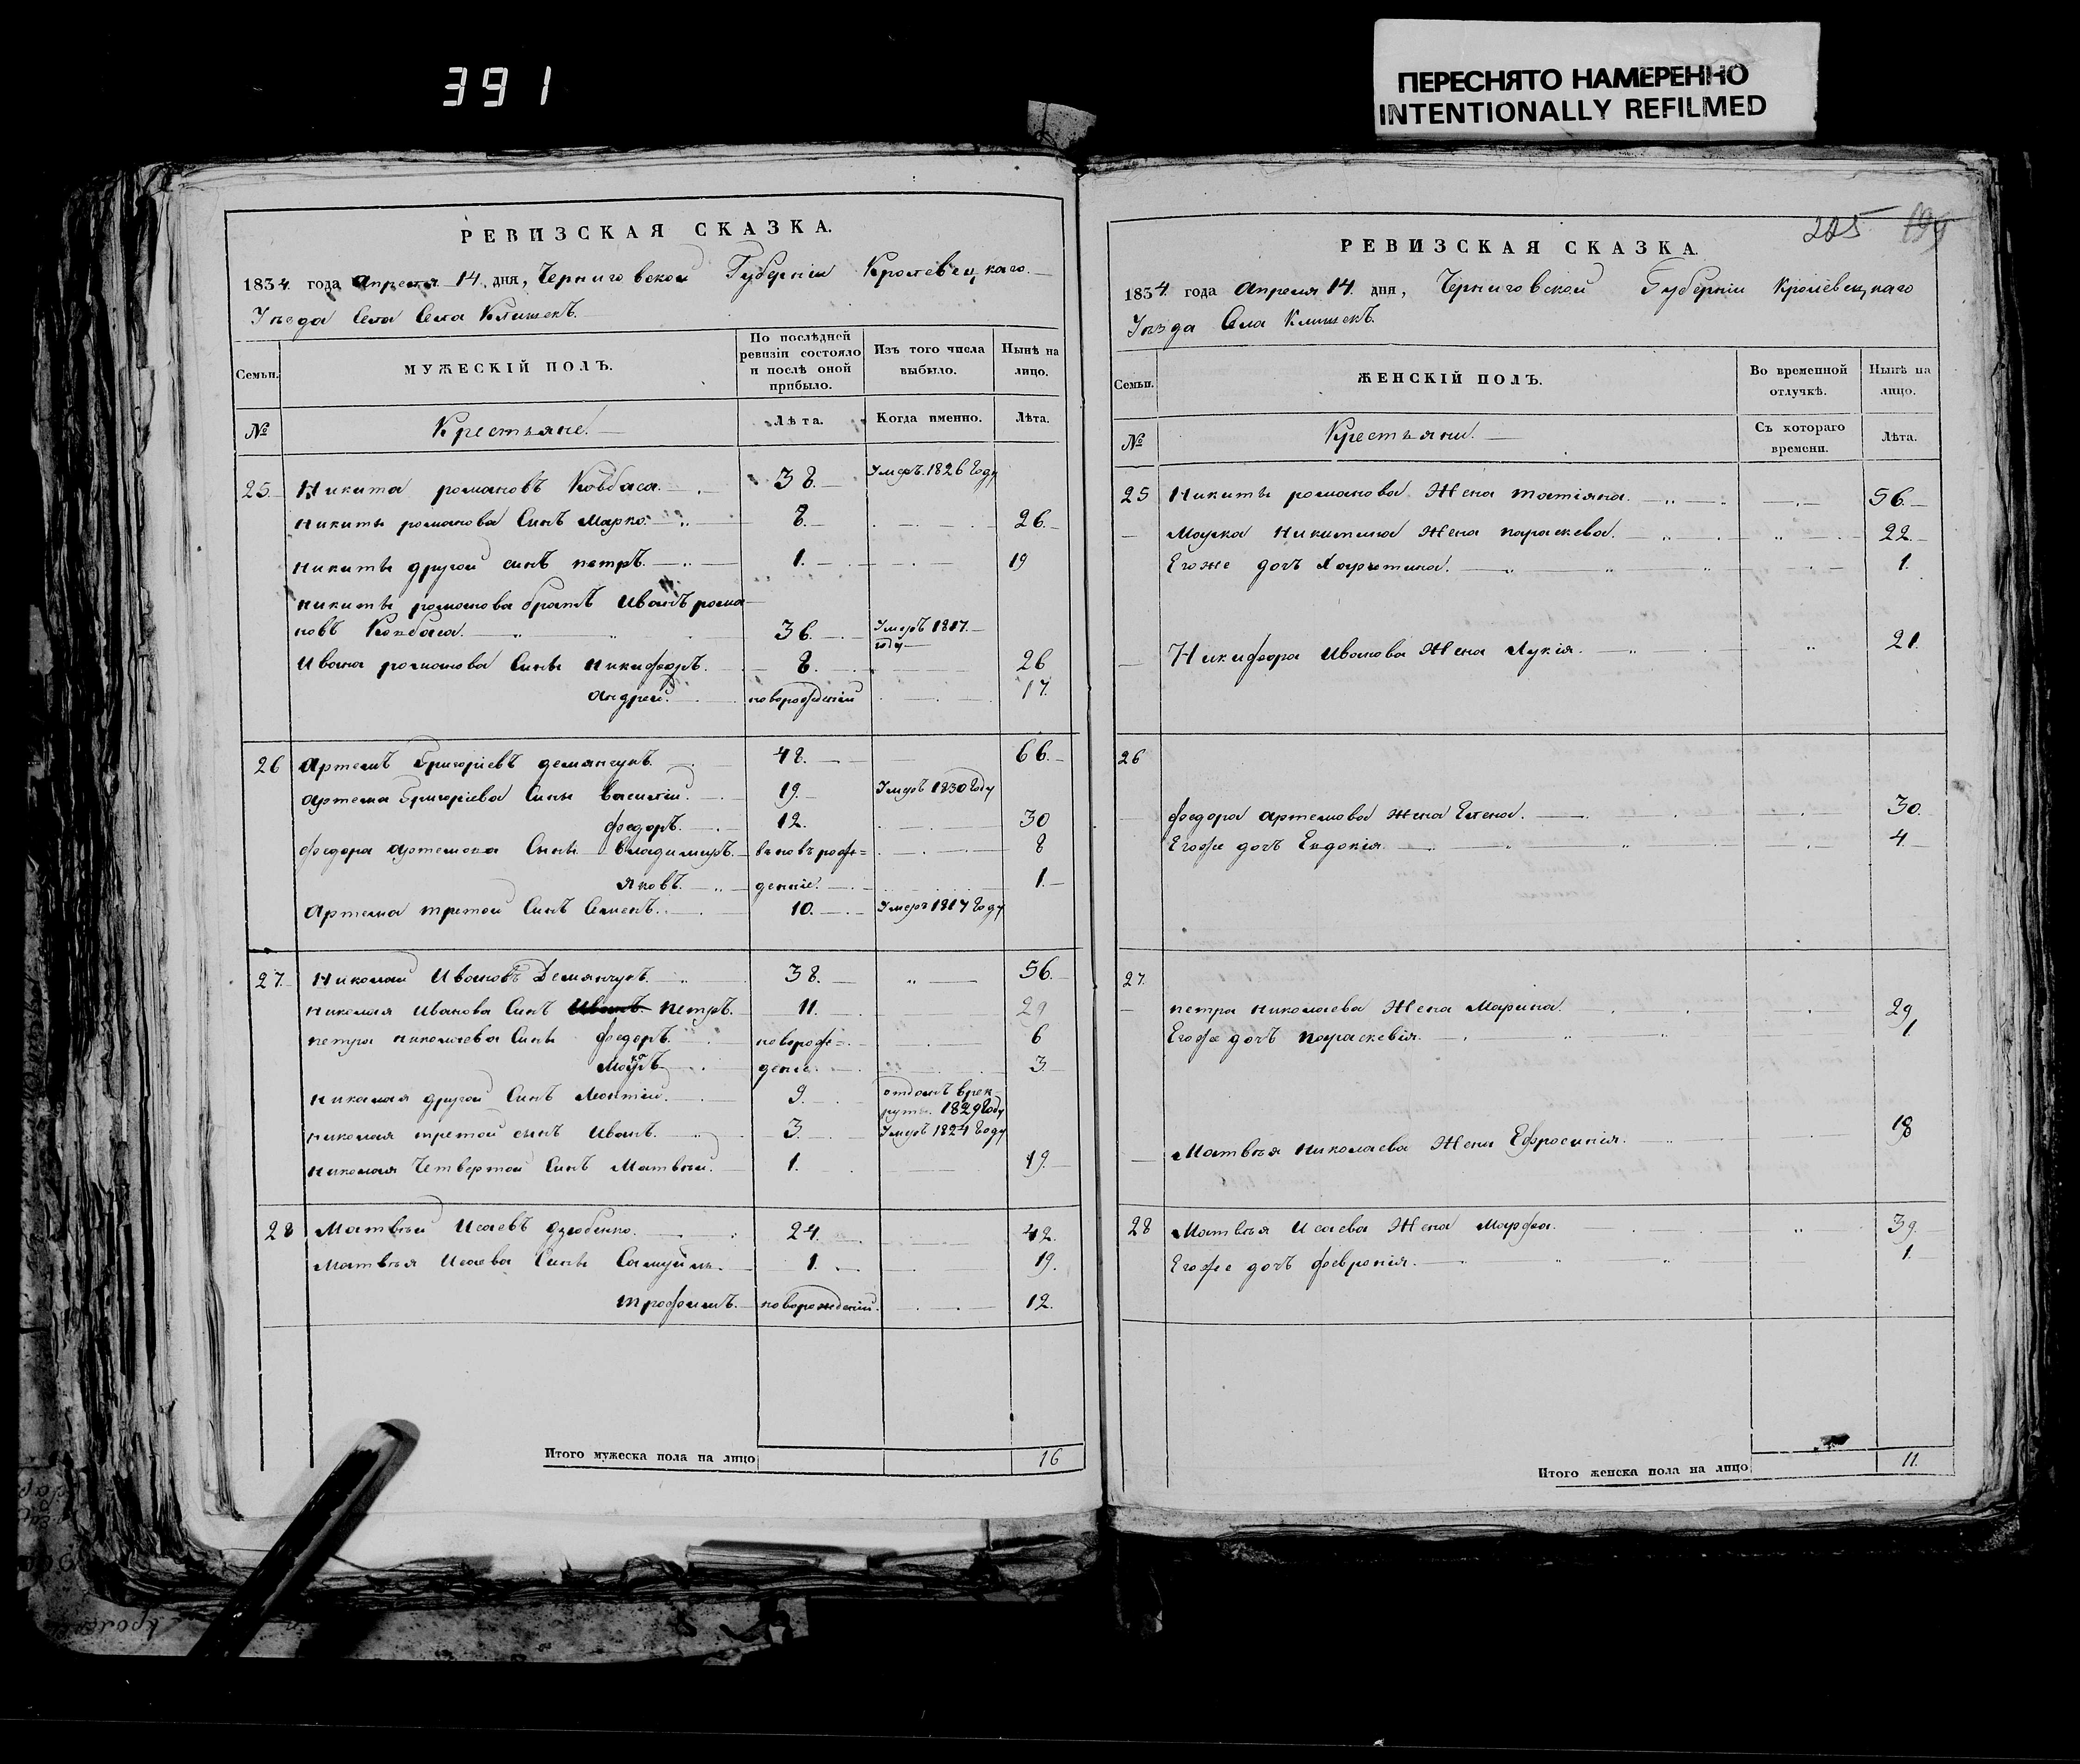 391
ПЕРЕСНЯТО НАМЕРЕННО
INTENTIONALLY REFILMED
РЕВИЗСКАЯ СКАЗКА.
1834. года Апреля 14. дня, Черниговской Губерніи Кролевецкаго.
Уѣзда Села Села Клишекъ.
Семьи.
МУЖЕСКІЙ ПОЛЪ.
По послѣдней ревизіи состояло и послѣ оной прибыло.
Изъ того числа выбыло.
Нынѣ на лицо.
№ Крестьяне. Лѣта. Когда именно. Лѣта.
25 Никита романовъ Ковбаса. 38. Умеръ. 1826 Году
никиты романова Синъ Марко. 8. 26.
никиты другой синъ петръ. 1. 19
никиты романова братъ Иванъ рома
новъ Ковбаса. 36. Умеръ 1817. году
Ивана романова Сины Никифоръ. 8. 26
Андрей. новорожденій 17.
26 Артемъ Григоріевъ демянчукъ. 48. 66.
Артема Григоріева Сины василій. 19. Умеръ 1830 Году
федоръ. 12. 30
федора артемова Сины Владимиръ. вновърож= 8
яковъ. деніе. 1.
Артема третой Синъ Семенъ. 10. Умеръ 1817 Году
27. Николай Ивановъ Демянчукъ. 38. 56.
николая Иванова Синъ Иванъ. петръ. 11. 29
петра николаева Сины федоръ. новорож= 6
деніе. 3
николая другой Синъ Леонтій. 9. отданъ врек-
руты. 1829 Году
николая третой синъ Иванъ. 3. Умеръ 1824 Году
николая Четвертой Синъ Матвѣй. 1. 19.
28 Матвѣй Исаевъ дзюбенко. 24. 42.
Матвѣя Исаева Сины Самуйлъ. 1. 19.
трофимъ. новорожденій. 12.
Итого мужеска пола на лицо 16
225 199
РЕВИЗСКАЯ СКАЗКА.
1834. года Апреля 14. дня, Черниговской Губерніи Кролевецкаго
Уѣзда Села Клишекъ.
Семьи.
ЖЕНСКІЙ ПОЛЪ.
Во временной отлучкѣ.
Нынѣ на лицо.
№ Крестьяни. Съ котораго времени. Лѣта.
25 Никиты романова Жена татіяна. 56.
Марка Никитина Жена параскева. 22.
Егоже дочъ Харитина. 1.
Никифора Иванова Жена Лукія. 21.
26
федора артемова Жена Елена. 30.
Егоже дочъ Евдокія. 4.
27.
петра николаева Жена Марина. 29
Егоже дочъ параскевія. 1
Матвѣя николаева Жена Ефросинія. 18
28 Матвѣя Исаева Жена Марфа. 39.
Егоже дочъ февронія. 1
Итого женска пола на лицо 11.